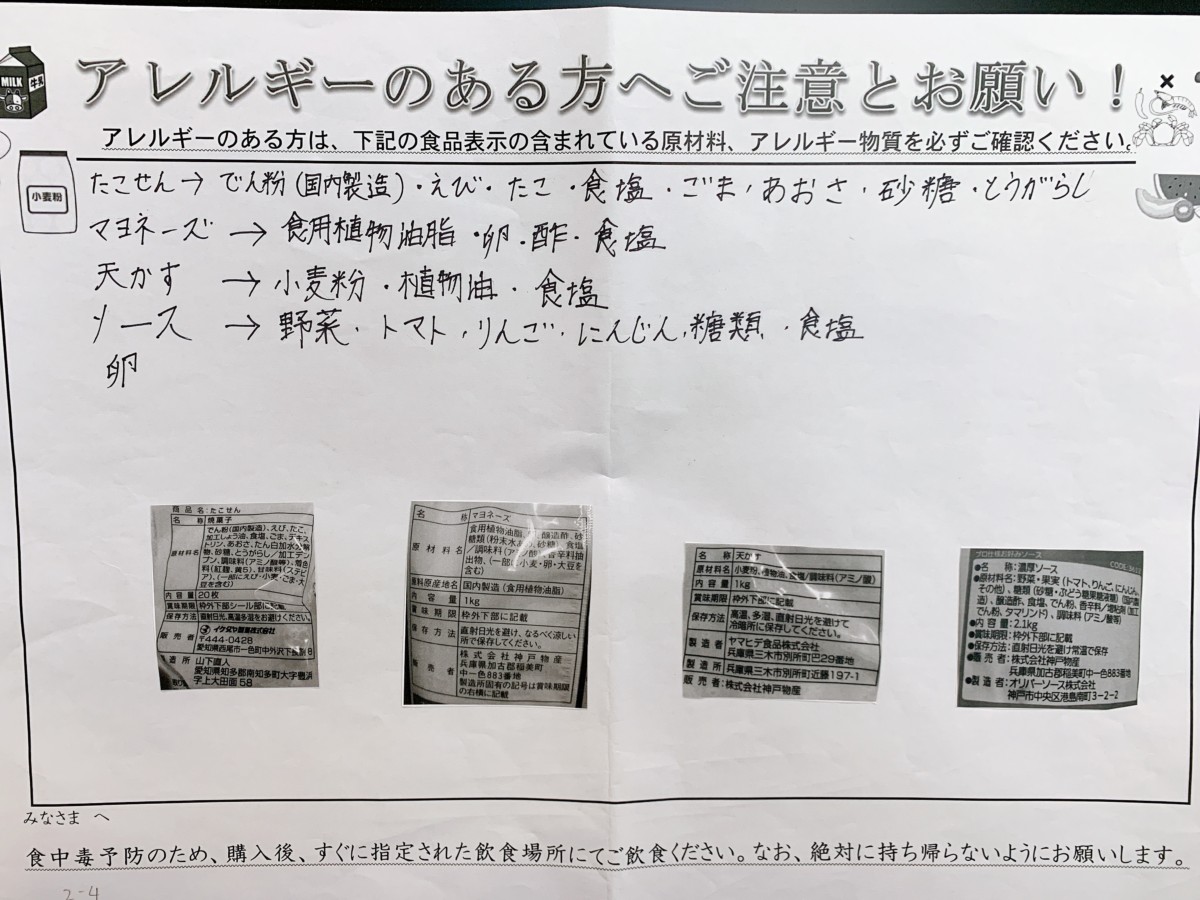 MILK
牛乳
アレルギーのある方へご注意とお願い！
アレルギーのある方は、下記の食品表示の含まれている原材料、アレルギー物質を必ずご確認ください。
小麦粉
たこせん→でん粉(国内製造)・えび・たこ・食塩・ごま,あおさ,砂糖・とうがらし
マヨネーズ→食用植物油脂・卵・酢・食塩
天かす→小麦粉・植物油・食塩
ソース→野菜・トマト,りんご,にんじん,糖類・食塩
卵
商品名:たこせん
名称 焼菓子
原材料名
でん粉(国内製造)、えび、たこ、
加工しょう油、食塩、ごま、デキス
トリン、あおさ、たん白加水分解
物、砂糖、とうがらし/加工デン
プン、調味料(アミノ酸等)、着色
料(紅麹、黄5)、甘味料(ステビ
ア)、(一部にえび・小麦・ごま・大
豆を含む)
内容量 20枚
賞味期限 枠外下部シール部に記載
保存方法 直射日光、高温多湿をお避けください。
販売者
〒444-0428
愛知県西尾市一色町中外沢下
造所 山下直人
愛知県知多郡南知多町大字豊浜
字上大田面58
名称 マヨネーズ
原材料名
食用植物油脂、
醸造酢、砂
糖類(粉末水あめ、砂糖)、食塩
/調味料(アミノ酸)、香辛料抽
出物、(一部に小麦・卵・大豆を
含む)
原料原産地名 国内製造(食用植物油脂)
内容量 1kg
賞味期限 枠外下部に記載
保存方法 直射日光を避け、なるべく涼しい
所で保存してください。
販売者
株式会社神戸物産
兵庫県加古郡稲美町
中一色883番地
製造所固有の記号は賞味期限
の右横に記載
名称 天かす
原材料名 小麦粉、植物油、食塩/調味料(アミノ酸)
内容量 1kg
賞味期限 枠外下部に記載
保存方法 高温、多湿、直射日光を避けて
冷暗所に保存してください。
製造者 ヤマヒデ食品株式会社
兵庫県三木市別所町巴29番地
製造所 兵庫県三木市別所町近藤197-1
販売者:株式会社神戸物産
プロ仕様お好みソース
●名称:濃厚ソース
●原材料名:野菜・果実(トマト、りんご、にんじん、
その他)、糖類(砂糖・ぶどう糖果糖液糖)(国内製
造)、醸造酢、食塩、でん粉、香辛料/増粘剤(加工
でん粉、タマリンド)、調味料(アミノ酸等)
●内容量:2.1kg
●賞味期限:枠外下部に記載
●保存方法:直射日光を避け常温で保存
●販売者:株式会社神戸物産
兵庫県加古郡稲美町中一色883番地
●製造者:オリバーソース株式会社
神戸市中央区港島南町3-2-2
みなさま へ
食中毒予防のため、購入後、すぐに指定された飲食場所にてご飲食ください。なお、絶対に持ち帰らないようにお願いします。
2-4